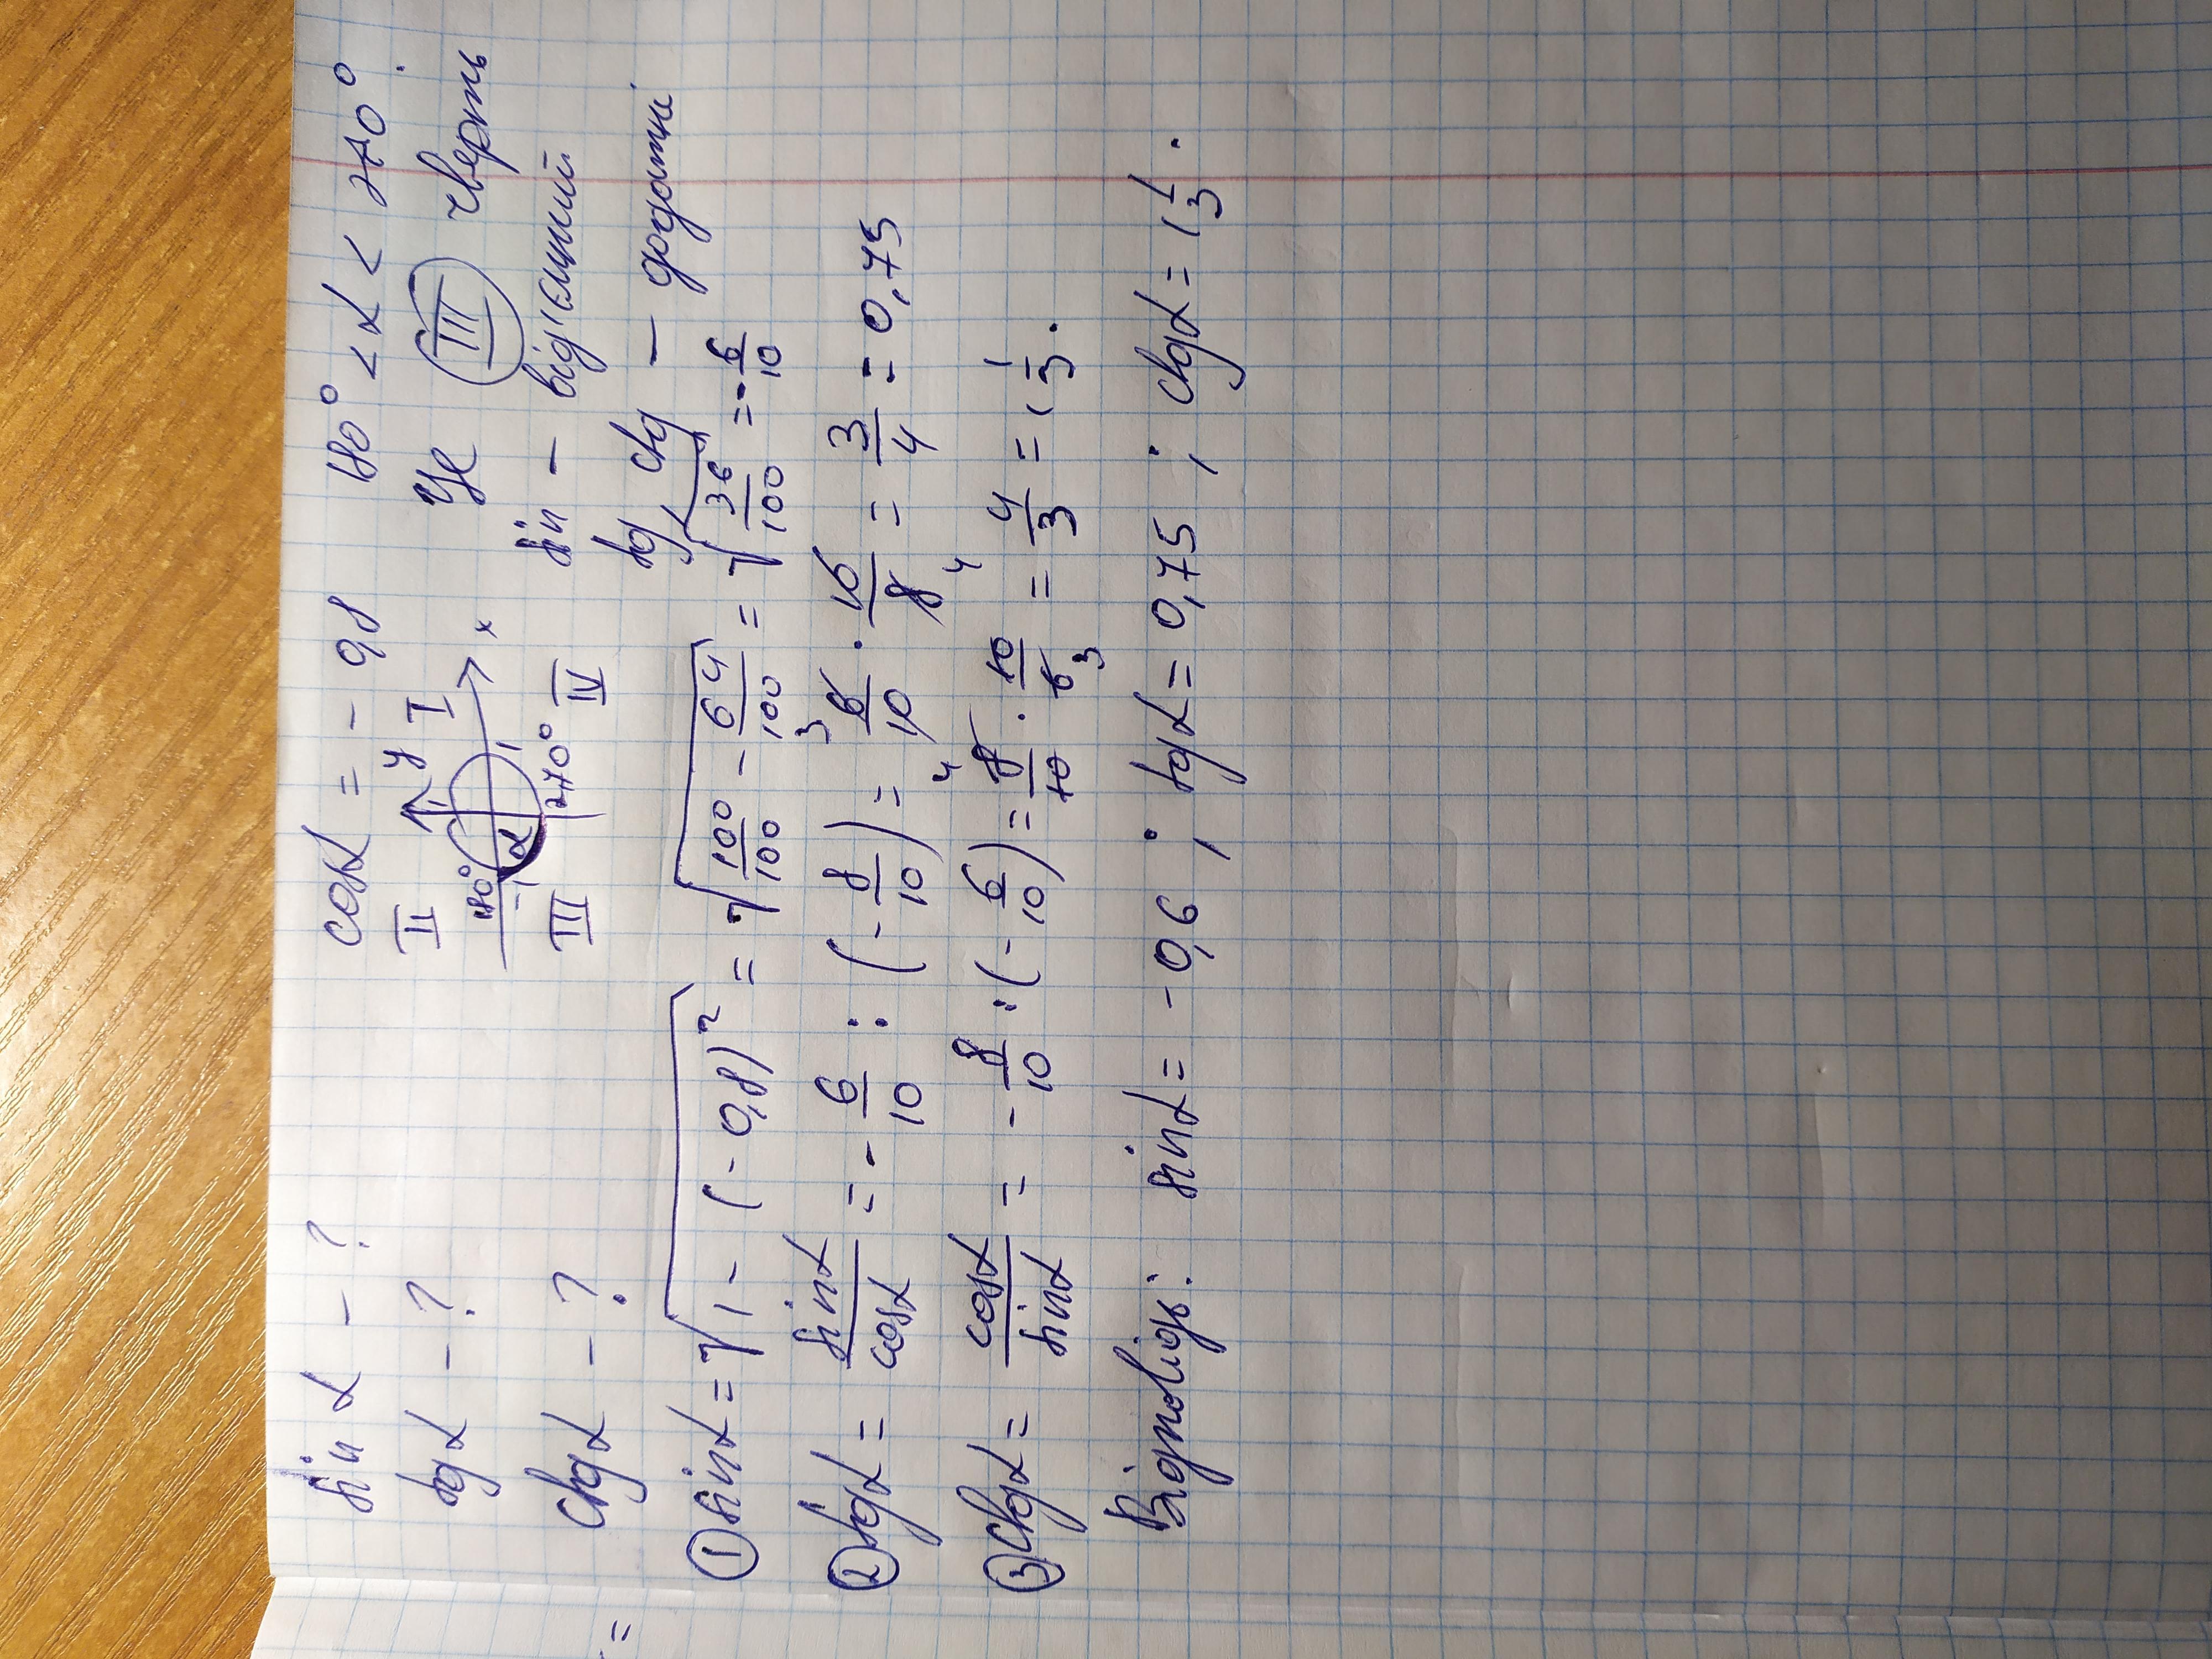 sin α - ? cos α = -0,8 180° < α < 270°.
tg α - ? II y I Це III чверть
180° -1 α 1 x
ctg α - ? III 270° IV sin - від'ємний
tg, ctg - додатні
① sin α = √(1 - (-0,8)²) = √(100/100 - 64/100) = √(36/100) = -6/10
② tg α = sin α/cos α = -6/10 : (-8/10) = 6/10 · 10/8 = 3/4 = 0,75
③ ctg α = cos α/sin α = -8/10 : (-6/10) = 8/10 · 10/6 = 4/3 = 1 1/3.
Відповідь: sin α = -0,6 ; tg α = 0,75 ; ctg α = 1 1/3.
=